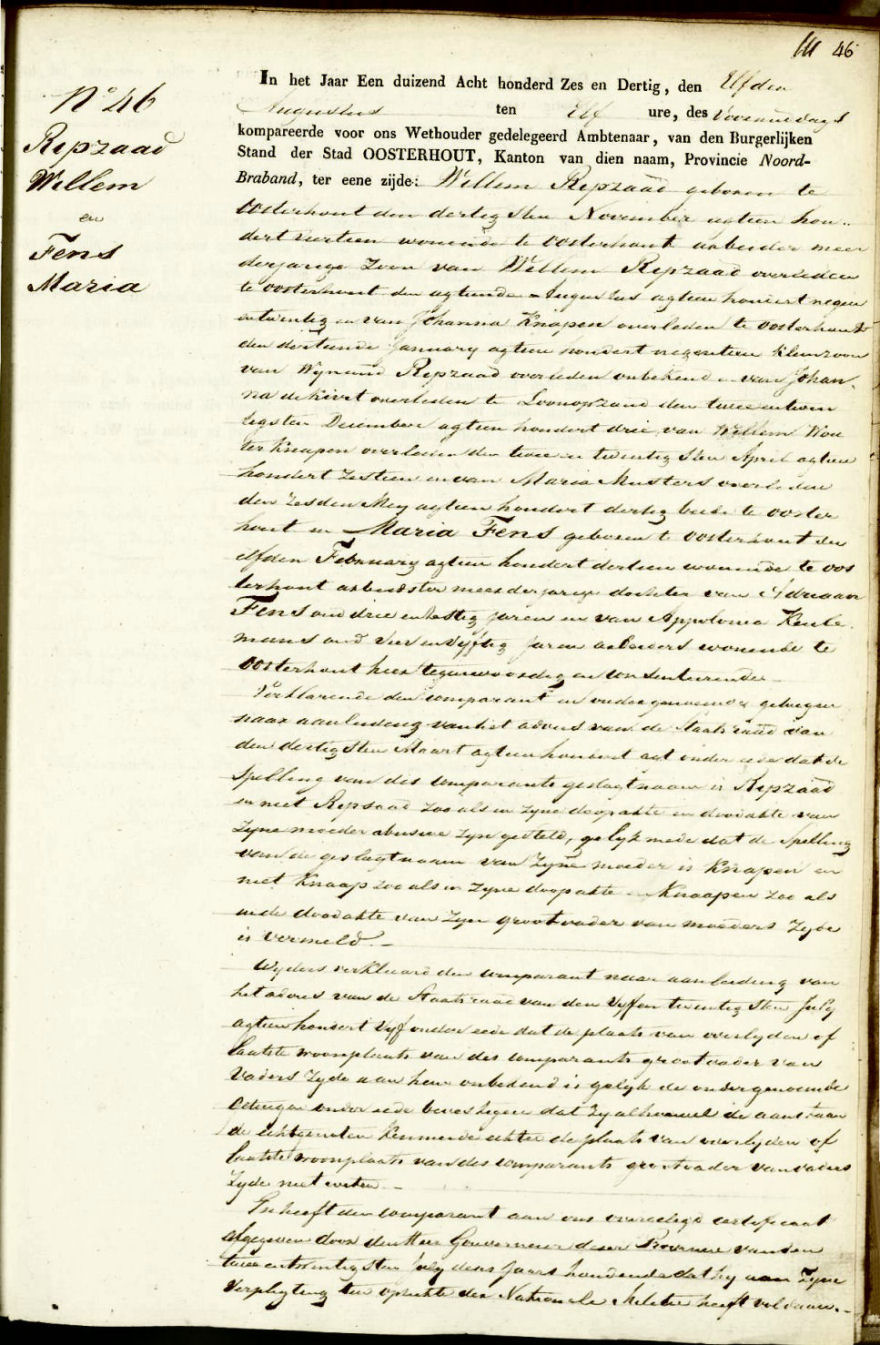 46
N° 46
Repzaad
Willem
en
Fens
Maria
In het Jaar Een duizend Acht honderd Zes en Dertig, den Elfden
Augustus ten Elf ure, des Voormiddags
kompareerde voor ons Wethouder gedelegeerd Ambtenaar, van den Burgerlijken
Stand der Stad OOSTERHOUT, Kanton van dien naam, Provincie Noord-
Braband, ter eene zijde: Willem Repzaad geboren te
Oosterhout den dertigsten November agtien hon-
dert veertien woonende te Oosterhout arbeider meer
derjarige Zoon van Willem Repzaad overleden
te Oosterhout den agtiende Augustus agtien hondert negen
entwintig en van Johanna Knapen overleden te Oosterhout
den dertiende January agtien hondert negentien kleinzoon
van Wynand Repzaad overleden onbekend en van Johan-
na de overleden te Loonopzand den twee entwin
tegsten December agtien hondert drie, van Willem Wou
ter Knapen overleden den twee en twentigsten April agtien
hondert Zestien en van Maria Musters overleden
den Zesden Mey agtien hondert dertig beide te Ooster
hout en Maria Fens geboren te Oosterhout den
elfden February agtien hondert dertien woonende te Oos
terhout arbeidster meerderjarige dochter van Adriaan
Fens oud drie en Zestig jaren en van Appolonia Keule
mans oud vier en vyftig jaren arbeiders wonende te
Oosterhout hier tegenwoordig en consenteerende
Verklarende den comparant en ondergenoemde getuigen
naar aanleiding van het advies van de Staatsraad van
den dertigsten Maart agtien hondert agt onder eede dat de
Spelling van des comparants geslagtnaam is Repzaad
en niet Repsaad zoo als in zyne doopakte en doodakte van
Zyne moeder abusive zyn gesteld, gelyk mede dat de Spelling
van de geslagtnaam van Zyne moeder is Knapen en
niet Knaap zoo als in Zyne doopakte en Knaapen zoo als
in de doodakte van Zyn grootvader van moeders Zyde
is vermeld.
Wyders verklaard den comparant naar aanleiding van
het advies van de Staatsraad van den Vyfentwentigsten July
agtien hondert Vyf onder eede dat de plaats van overlyden of
laatste woonplaats van des comparants grootvader van
Vaders Zyde aan hem onbekend is gelyk de ondergenoemde
Getuigen onder eede bevestigen dat Zy alhoewel de aanstaan
de echtgenoten kennende echter de plaats van overlyden of
laatste woonplaats van des comparants grootvader van vaders
Zyde niet weten.
En heeft den comparant aan ons overgelegd certificaat
afgegeven door den Heer Gouverneur dezer Provincie van den
twee entwintigsten July dezes Jaars houdende dat hy aan Zyne
Verpligting ten opzichte der Nationale Militie heeft voldaan.